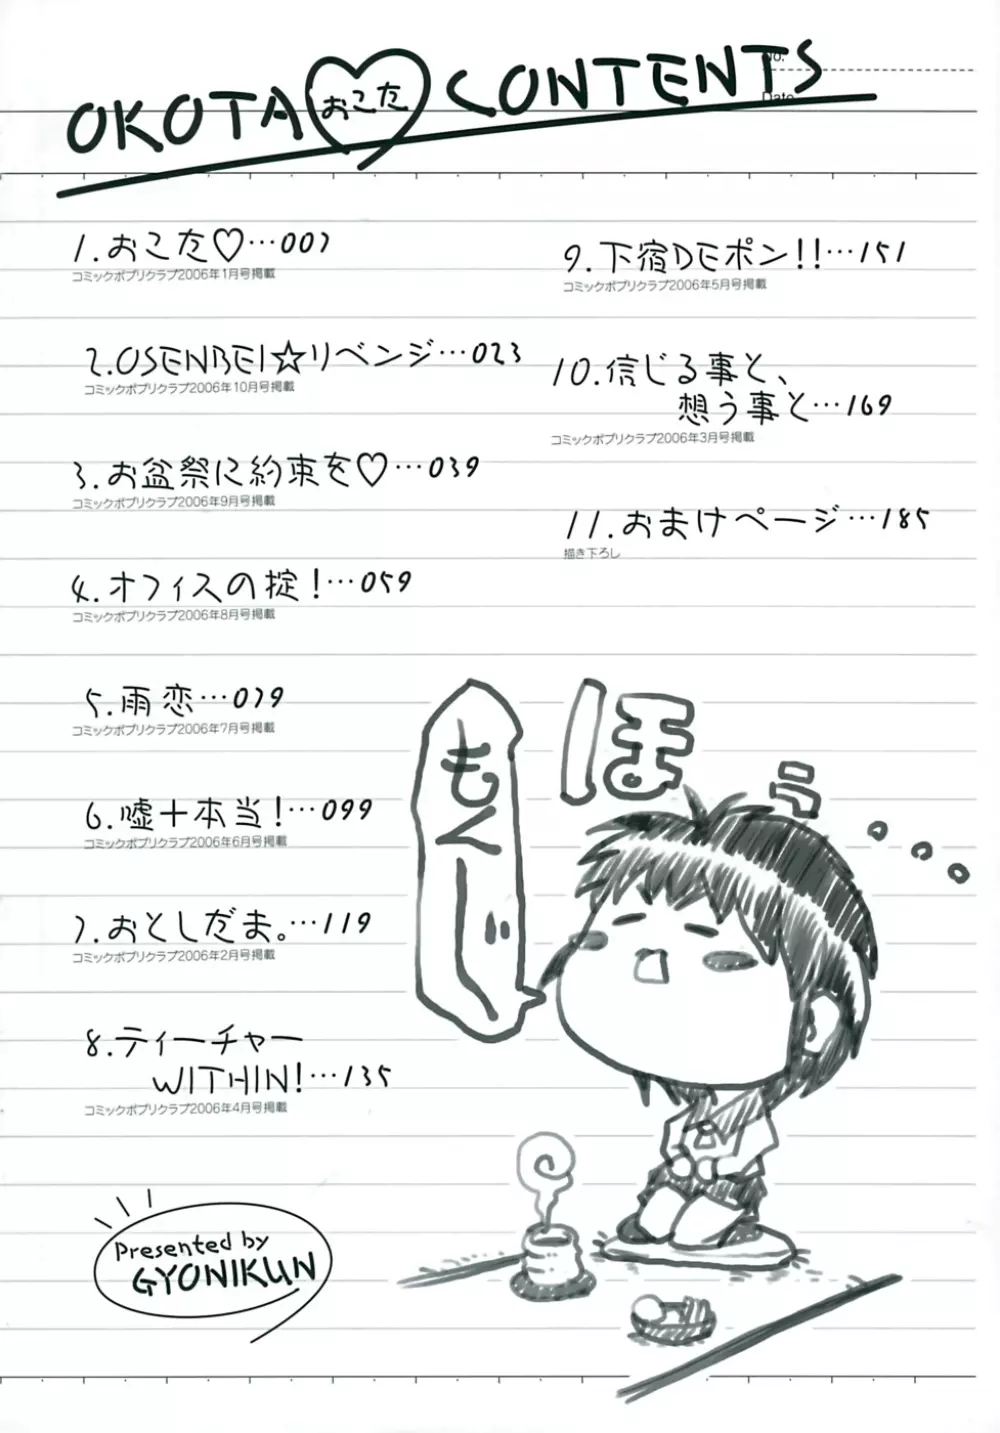 No.
Date
OKOTA おこた CONTENTS
1.おこた♡…007
コミックポプリクラブ2006年1月号掲載
2.OSENBEI☆リベンジ…023
コミックポプリクラブ2006年10月号掲載
3.お盆祭に約束を♡…039
コミックポプリクラブ2006年9月号掲載
4.オフィスの掟!…059
コミックポプリクラブ2006年8月号掲載
5.雨恋…079
コミックポプリクラブ2006年7月号掲載
6.嘘+本当!…099
コミックポプリクラブ2006年6月号掲載
7.おとしだま。…119
コミックポプリクラブ2006年2月号掲載
8.ティーチャー
WITHIN!…135
コミックポプリクラブ2006年4月号掲載
9.下宿DEポン!!…151
コミックポプリクラブ2006年5月号掲載
10.信じる事と、
想う事と…169
コミックポプリクラブ2006年3月号掲載
11.おまけページ…185
描き下ろし
もくーじ
ほぅ
Presented by
GYONIKUN